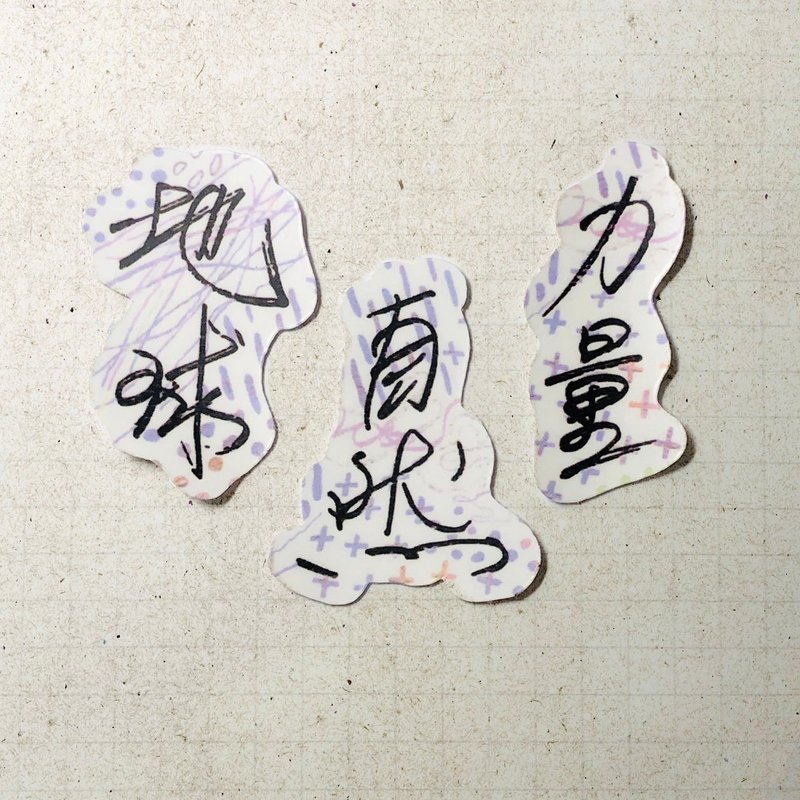 地球
自然
力量